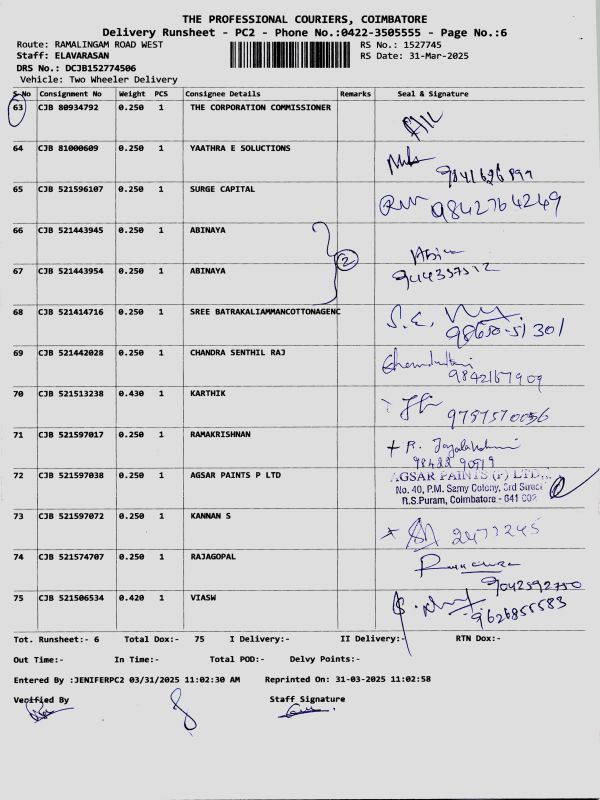 THE PROFESSIONAL COURIERS, COIMBATORE
Delivery Runsheet - PC2 - Phone No.:0422-3505555 - Page No.:6
Route: RAMALINGAM ROAD WEST RS No.: 1527745
Staff: ELAVARASAN RS Date: 31-Mar-2025
DRS No.: DCJB152774506
Vehicle: Two Wheeler Delivery
S No Consignment No Weight PCS Consignee Details Remarks Seal & Signature
63 CJB 80934792 0.250 1 THE CORPORATION COMMISSIONER
64 CJB 81000609 0.250 1 YAATHRA E SOLUCTIONS
65 CJB 521596107 0.250 1 SURGE CAPITAL 9842764249
66 CJB 521443945 0.250 1 ABINAYA
2
67 CJB 521443954 0.250 1 ABINAYA
68 CJB 521414716 0.250 1 SREE BATRAKALIAMMANCOTTONAGENC
98650-51301
69 CJB 521442028 0.250 1 CHANDRA SENTHIL RAJ
9842167909
70 CJB 521513238 0.430 1 KARTHIK
71 CJB 521597017 0.250 1 RAMAKRISHNAN
72 CJB 521597038 0.250 1 AGSAR PAINTS P LTD AGSAR PAINTS (P) LTD.,
No. 40, P.M. Samy Colony, 3rd Street
R.S.Puram, Coimbatore - 641 002
73 CJB 521597072 0.250 1 KANNAN S
74 CJB 521574707 0.250 1 RAJAGOPAL
9042592750
75 CJB 521506534 0.420 1 VIASW 9626855583
Tot. Runsheet:- 6 Total Dox:- 75 I Delivery:- II Delivery:- RTN Dox:-
Out Time:- In Time:- Total POD:- Delvy Points:-
Entered By :JENIFERPC2 03/31/2025 11:02:30 AM Reprinted On: 31-03-2025 11:02:58
Verified By Staff Signature